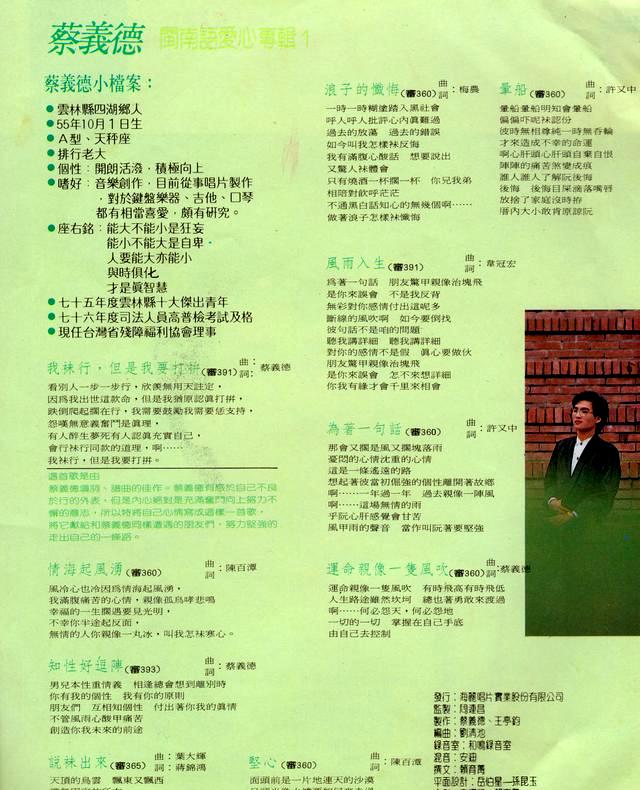 蔡義德 閩南語愛心專輯1
蔡義德小檔案：
●雲林縣四湖鄉人
●55年10月1日生
●A型、天秤座
●排行老大
●個性：開朗活潑，積極向上
●嗜好：音樂創作，目前從事唱片製作
，對於鍵盤樂器、吉他、口琴
都有相當喜愛，頗有研究。
●座右銘：能大不能小是狂妄
能小不能大是自卑
人要能大亦能小
與時俱化
才是眞智慧
●七十五年度雲林縣十大傑出青年
●七十六年度司法人員高普檢考試及格
●現任台灣省殘障福利協會理事
我袜行，但是我要打拚(審391) 曲詞：蔡義德
看別人一步一步行，欣羨無用天註定，
因爲我出世這款命，但是我猶原認眞打拚，
跌倒爬起擱在行，我需要鼓勵我需要恁支持，
怨嘆無意義奮鬥是眞理，
有人醉生夢死有人認眞充實自己，
會行袜行同款的道理，啊……
我袜行，但是我要打拚。
這首歌是由
蔡義德塡詞、譜曲的佳作。蔡義德有感於自己不良
於行的外表，但是內心絕對是充滿奮鬥向上努力不
懈的意志，所以特將自己心情寫成這樣一首歌，
將它獻給和蔡義德同樣遭遇的朋友們，努力堅強的
走出自己的一條路。
情海起風湧(審360) 曲詞：陳百潭
風冷心也冷因爲情海起風湧，
我滿腹痛苦的心情，親像孤鳥哮悲鳴
幸福的一生擱遇要見光明，
不幸你半途起反面，
無情的人你親像一丸冰，叫我怎袜寒心。
知性好逗陣(審393) 曲詞：蔡義德
男兒本性重情義 相逢總會想到離別時
你有我的個性 我有你的原則
朋友們 互相知個性 付出著你我的眞情
不管風雨心酸甲痛苦
創造你我未來的前途
說袜出來(審365) 曲：葉大輝 詞：蔣錦鴻
天頂的烏雲 飄東又飄西
浪子的懺悔(審360) 曲詞：梅農
一時一時糊塗踏入黑社會
呼人呼人批評心內眞難過
過去的放蕩 過去的錯誤
如今叫我怎樣袜反悔
我有滿腹心酸話 想要說出
又驚人袜體會
只有燒酒一杯擱一杯 你兄我弟
相陪對飲呼茫茫
不通黑白話知心的無幾個啊……
做著浪子怎樣袜懺悔
風雨人生(審391) 曲詞：韋冠宏
爲著一句話 朋友驚甲親像冶塊飛
是你來誤會 不是我反背
無彩對你感情付出這呢多
斷線的風吹啊 如今要倒找
彼句話不是咱的問題
聽我講詳細 聽我講詳細
對你的感情不是假 眞心要做伙
朋友驚甲親像冶塊飛
是你來誤會 怎不來想詳細
你我有緣才會千里來相會
為著一句話(審360) 曲詞：許又中
那會又擱是風又擱塊落雨
憂悶的心情沈重的心情
這是一條遙遠的路
想起著彼當初倔強的個性離開著故鄉
啊……一年過一年 過去親像一陣風
啊……這場無情的雨
乎阮心肝感覺會甘苦
風甲雨的聲音 當作叫阮著要堅強
運命親像一隻風吹(審360) 曲詞：蔡義德
運命親像一隻風吹 有時飛高有時飛低
人生路途雖然坎坷 總也著勇敢來渡過
啊……何必怨天，何必怨地
一切的一切 掌握在自己手底
由自己去控制
堅心(審360) 曲詞：陳百潭
面頭前是一片地連天的沙漠
暈船(審360) 曲詞：許又中
暈船暈船明知會暈船
偏偏吓呢袜認份
彼時無相尊純一時無吞輪
才來造成不幸的命運
啊心肝頭心肝頭自棄自恨
陣陣的痛苦煞變成痕
誰人誰人了解阮後悔
後悔 後悔目屎滴落嘴唇
放捨了家庭沒時捹
厝內大小敢肯原諒阮
發行：海麗唱片實業股份有限公司
監製：周連昌
製作：蔡義德、王亭鈞
編曲：劉清池
錄音室：和鳴錄音室
混音：安迪
撰文：賴育萬
平面設計：岳伯星—孫昆玉